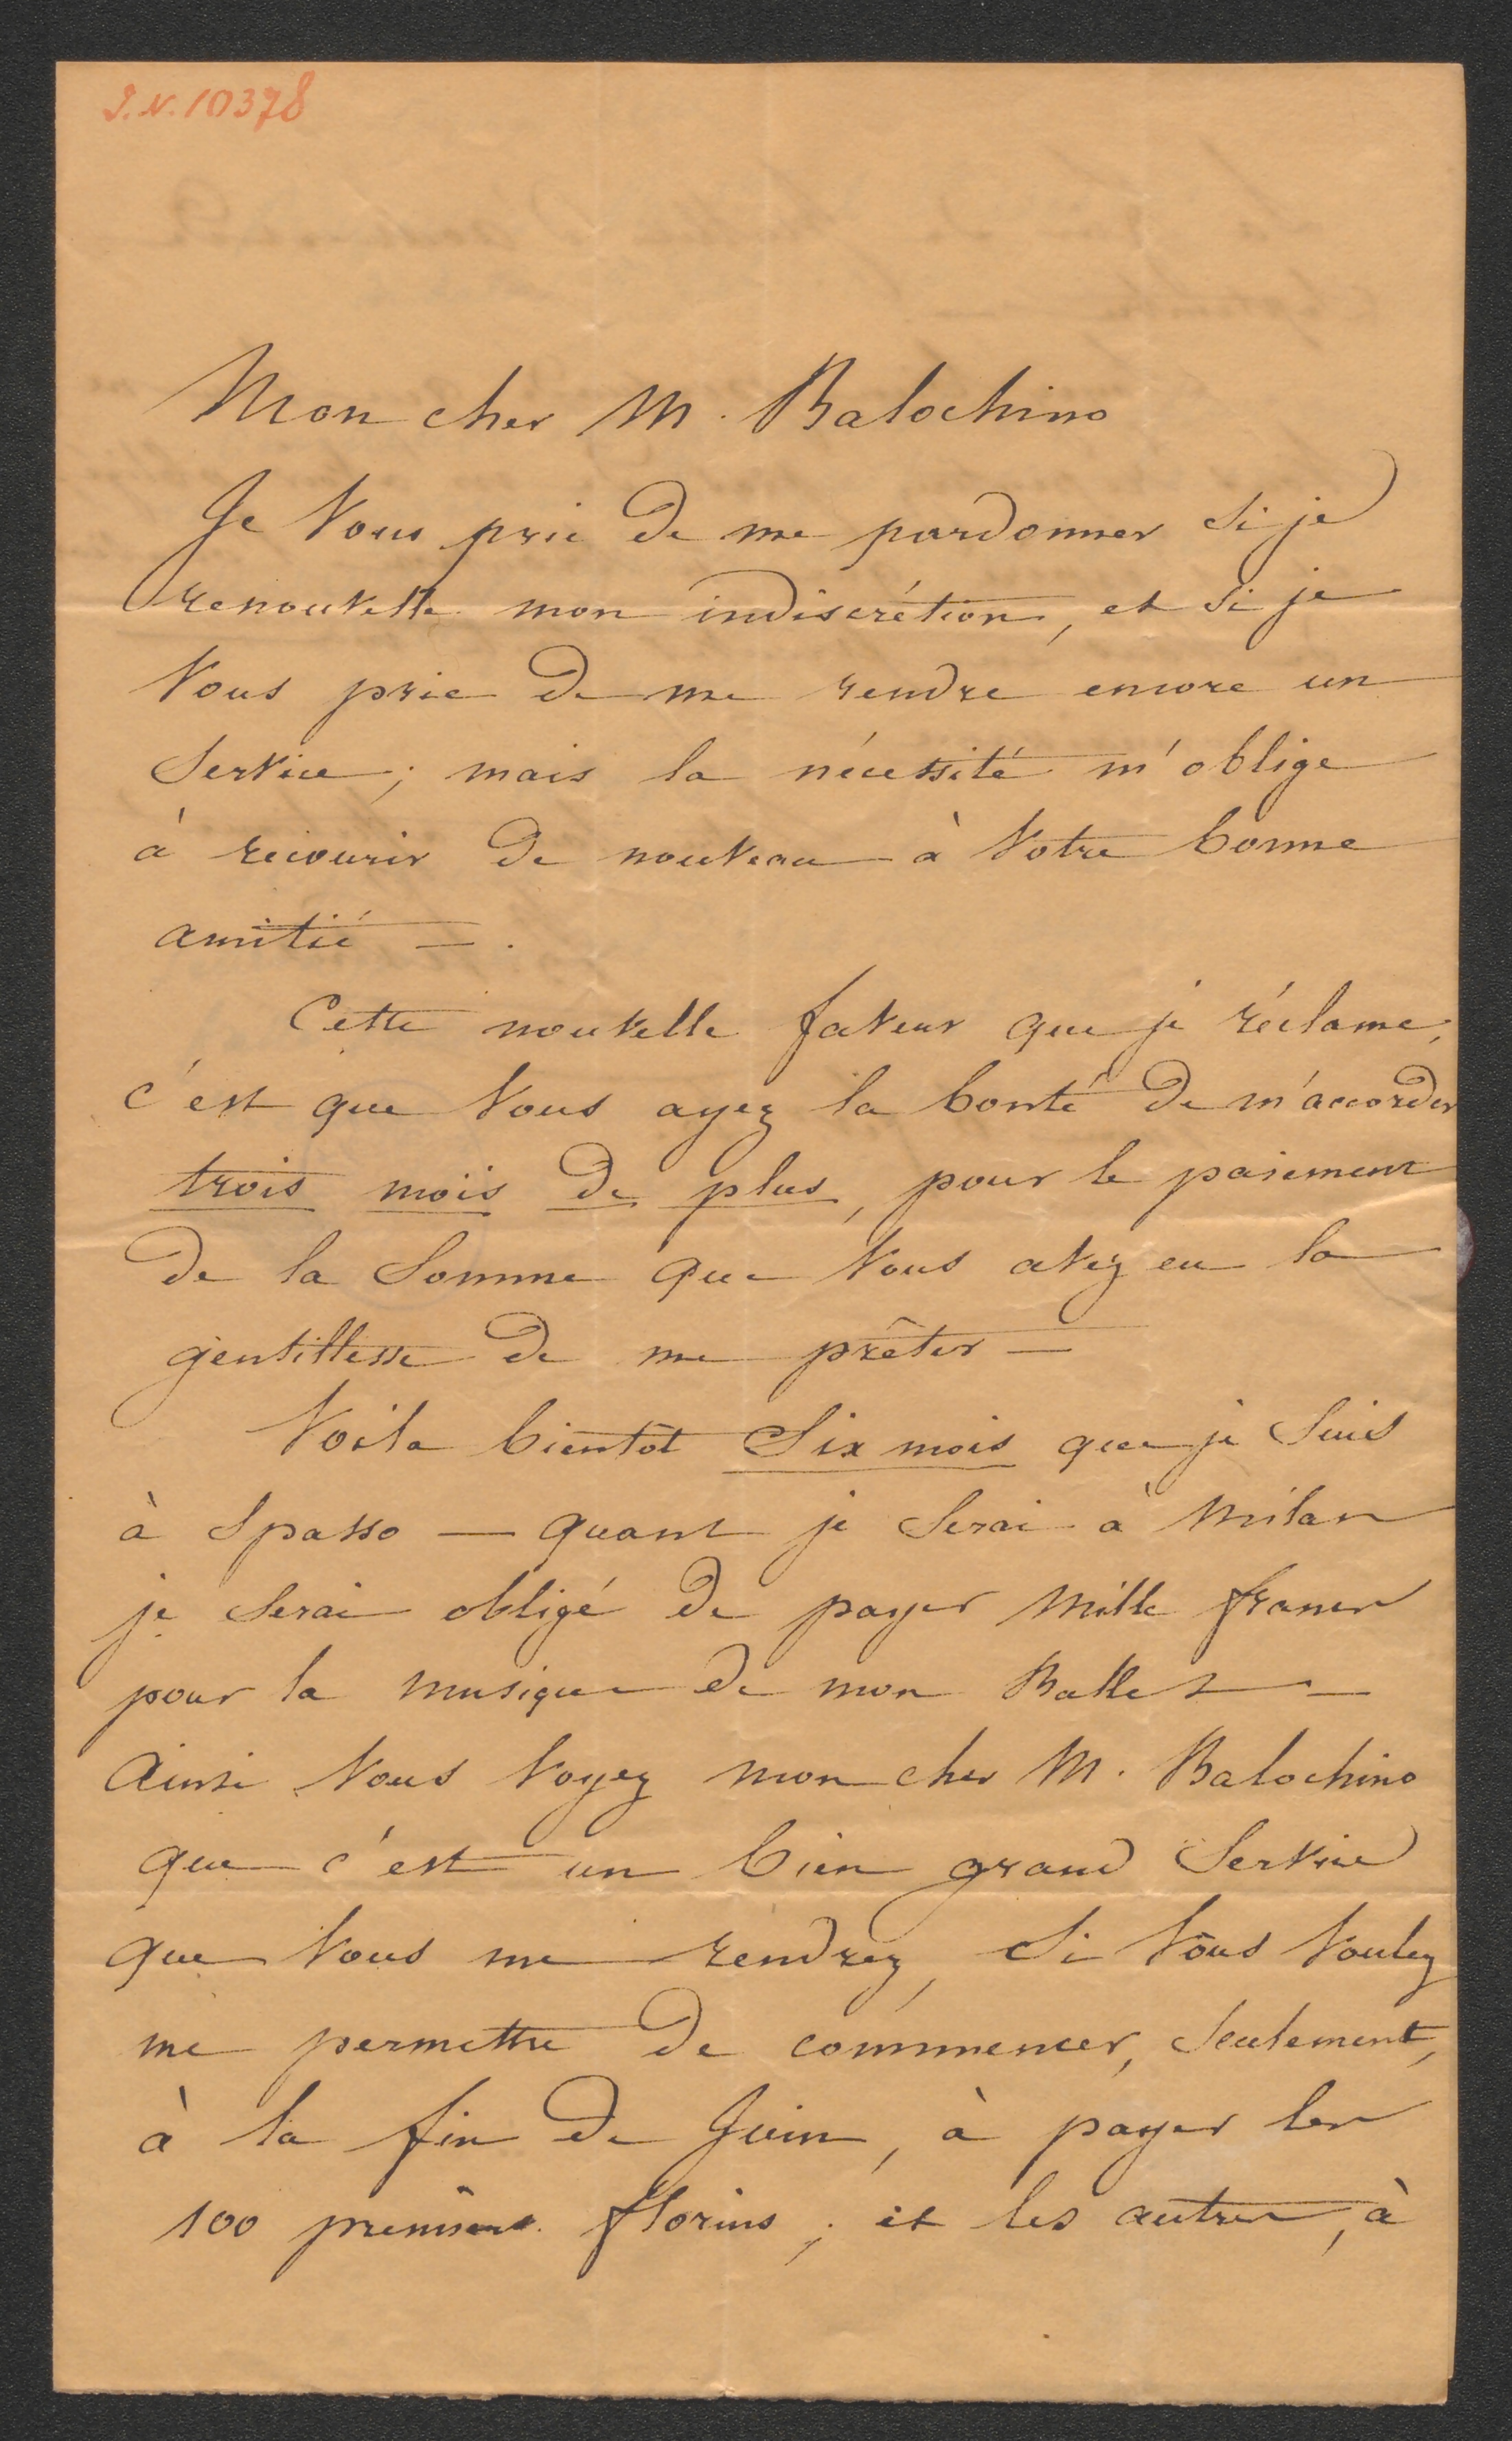 J.N. 10378
Mon cher M. Balochino
Je Vous prie de me pardonner si je
renouvelle mon indiscrétion, et si je
Vous prie de me rendre encore un
Service; mais la nécessité m'oblige
à recourir de nouveau à Votre bonne
amitié — .
Cette nouvelle faveur que je réclame,
c'est que Vous ayez la bonté de m'accorder
trois mois de plus, pour le paiement
de la Somme que Vous avez eu la
gentillesse de me prêter —
Voila bientôt Six mois que je Suis
à Spasso — quant je Serai à Milan
je Serai obligé de payer Mille francs
pour la musique de mon Ballet —
Ainsi Vous Voyez mon cher M. Balochino
que c'est un bien grand Service
que Vous me rendrez, Si Vous Voulez
me permettre de commencer, Seulement,
à la fin de Juin, à payer les
100 premiers florins; et les autres, à